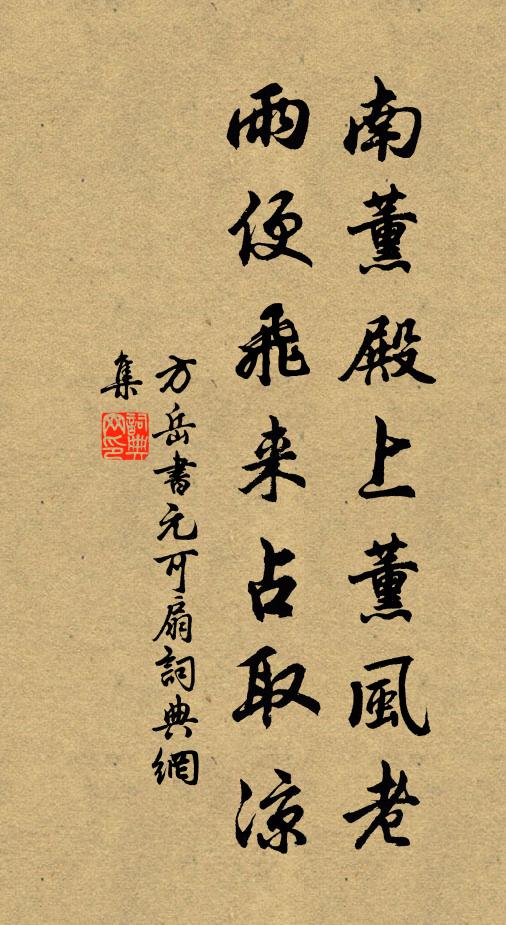 南薰殿上薰風老
雨便飛来占取涼
方岳書元可扇詞典網
集
詞典
网印